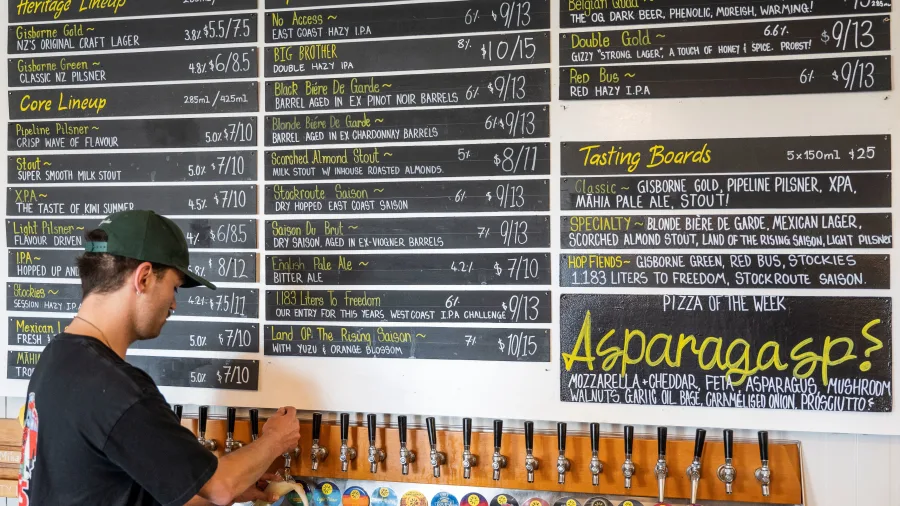 Heritage Lineup
Gisborne Gold ~ 3.8% $5.5/7.5
NZ'S ORIGINAL CRAFT LAGER
Gisborne Green ~ 4.8% $6/8.5
CLASSIC NZ PILSNER
Core Lineup 285ml/425ml
Pipeline Pilsner ~ 5.0% $7/10
CRISP WAVE OF FLAVOUR
Stout ~ 5.0% $7/10
SUPER SMOOTH MILK STOUT
XPA ~ 4.5% $7/10
THE TASTE OF KIWI SUMMER
Light Pilsner ~ 4% $6/8.5
FLAVOUR DRIVEN
IPA ~ 5.8% $8/12
HOPPED UP AND
Stockies ~ 4.2% $7.5/11
SESSION HAZY I.P.A
Mexican L 5.0% $7/10
FRESH
MĀHI 5.0% $7/10
TRO
No Access ~ 6% $9/13
EAST COAST HAZY I.P.A
BIG BROTHER 8% $10/15
DOUBLE HAZY IPA
Black Biére De Garde ~ 6% $9/13
BARREL AGED IN EX PINOT NOIR BARRELS
Blonde Biére De Garde ~ 6% $9/13
BARREL AGED IN EX CHARDONNAY BARRELS
Scorched Almond Stout ~ 5% $8/11
MILK STOUT W/ INHOUSE ROASTED ALMONDS.
Stockroute Saison ~ 6% $9/13
DRY HOPPED EAST COAST SAISON
Saison Du Brut ~ 7% 9/13
DRY SAISON, AGED IN EX-VIOGNER BARRELS
English Pale Ale ~ 4.2% $7/10
BITTER ALE
1183 Liters To Freedom ~ 6% $9/13
OUR ENTRY FOR THIS YEARS WESTCOAST I.P.A CHALLENGE
Land Of The Rising Saison ~ 7% $10/15
WITH YUZU & ORANGE BLOSSOM
Belgian Quad
THE OG DARK BEER, PHENOLIC, MOREISH, WARMING!
Double Gold ~ 6.6% $9/13
GIZZY "STRONG LAGER", A TOUCH OF HONEY & SPICE. PROBST!
Red Bus ~ 6% $9/13
RED HAZY I.P.A
Tasting Boards 5x150ml $25
Classic ~ GISBORNE GOLD, PIPELINE PILSNER, XPA,
MĀHIA PALE ALE, STOUT!
SPECIALTY ~ BLONDE BIÈRE DE GARDE, MEXICAN LAGER,
SCORCHED ALMOND STOUT, LAND OF THE RISING SAISON, LIGHT PILSNER
HOP FIENDS ~ GISBORNE GREEN, RED BUS, STOCKIES
1183 LITERS TO FREEDOM, STOCKROUTE SAISON.
PIZZA OF THE WEEK
Asparagasp!
MOZZARELLA + CHEDDAR, FETA, ASPARAGUS, MUSHROOM
WALNUTS, GARLIC OIL BASE, CARAMELISED ONION, PROSCIUTTO